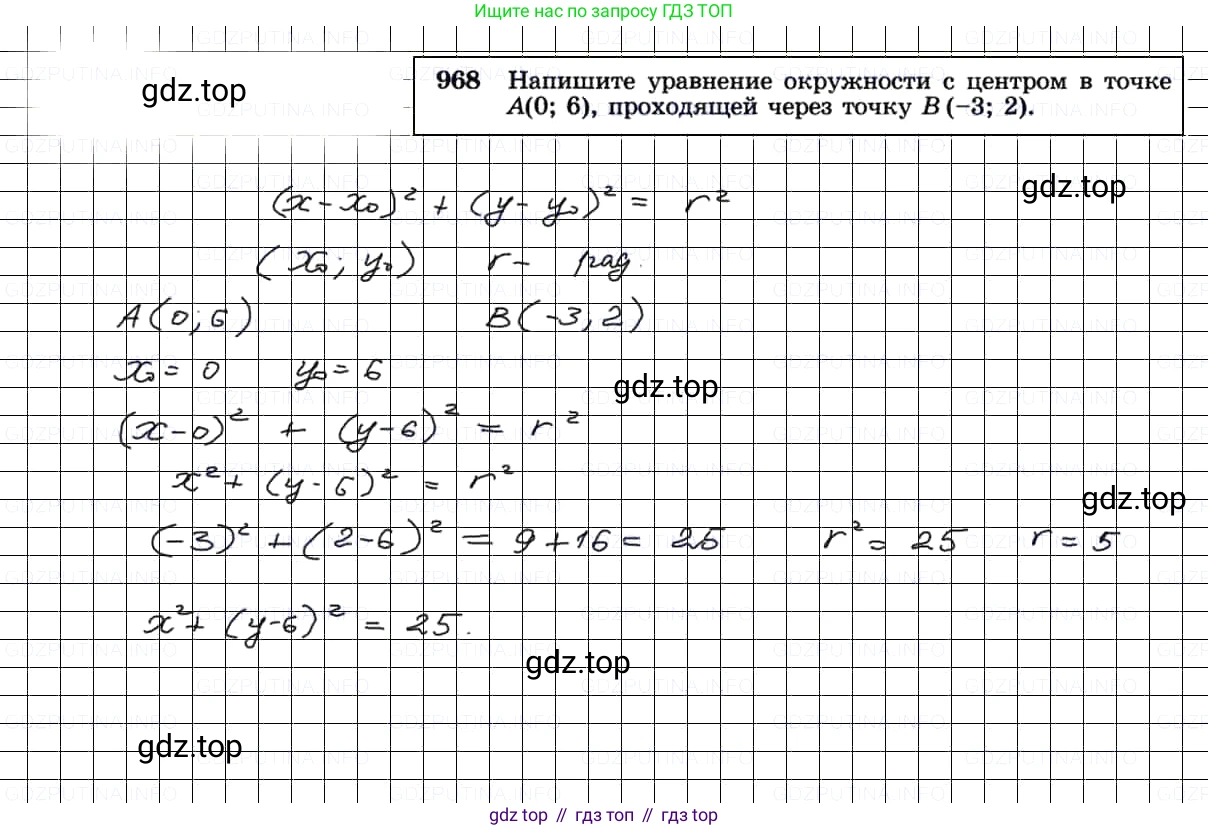 Ищите нас по запросу ГДЗ ТОП
gdz.top
968 Напишите уравнение окружности с центром в точке
A(0; 6), проходящей через точку B (−3; 2).
gdz.top
(x - x₀)² + (y - y₀)² = r²
(x₀; y₀) r - рад.
A(0; 6) B(-3; 2)
x₀ = 0 y₀ = 6
gdz.top
(x-0)² + (y-6)² = r²
x² + (y-6)² = r²
gdz.top
(-3)² + (2-6)² = 9 + 16 = 25 r² = 25 r = 5
x² + (y-6)² = 25.
gdz.top
gdz.top
gdz top // гдз топ // гдз top